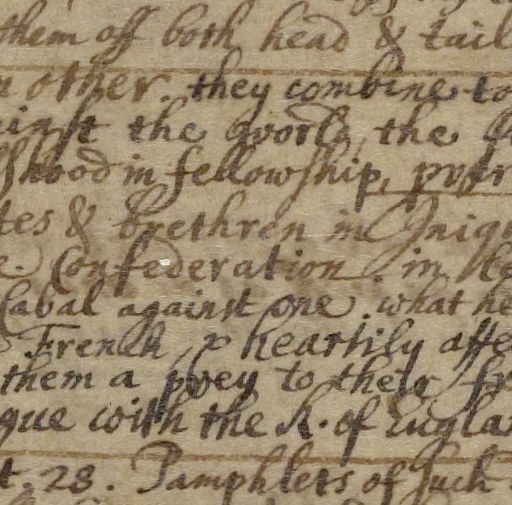 them off both head & tail
other. they combine to
against the world, the
hood in fellowship,
tes & brethren in Iniqu
e. Confederation. in le
Cabal against one. what he
French, & heartily affe
them a prey to their fr
gue with the K. of Englan
t. 28. Pamphlets of such